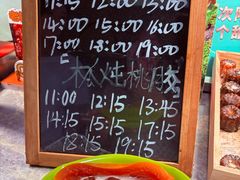 11:15 12:15 13:00
14:00 15:00 16:00
17:00 18:00 19:00
木瓜炖桃胶
11:00 12:15 13:45
14:15 15:15 17:15
18:15 19:15
次
个